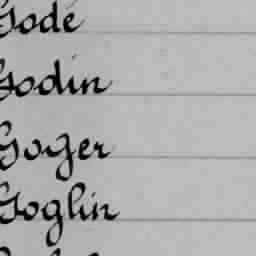 Godé
Godin
Goyer
Goglin